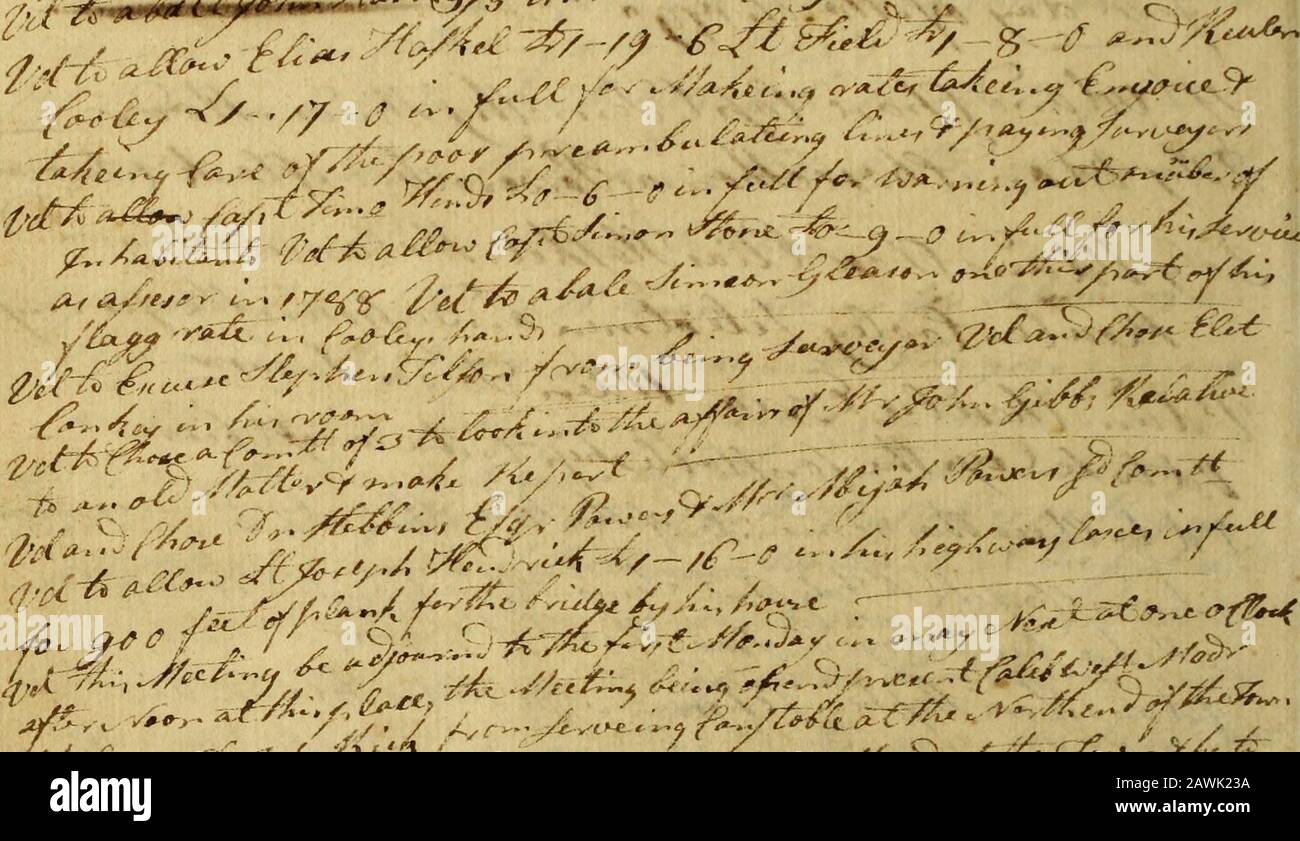 Vd to abate John
Vd to allow Elias Haskel £1-19-6 Lt Field £1-8-0 and Reuben
Cooley £1-17-0 in full for Makeing rates takeing Envoice &
takeing Care of the poor preambulateing lines & paying Surveyors
Vd to allow Capt Timo Hinds £0-6-0 in full for warning out number of
Inhabitents Vd to allow Capt Simon Stone £0-9-0 in full for his Service
as assesor in 1788 Vd to abate Simeon Gleason one third part of his
flagg rate in Cooleys hands
Vd to Excuse Stephen Tilson from being Surveyor Vd and Chose Elet
Conkey in his room
Vd to Chose a Comtt of 3 to look into the affairs of Mr John Gibbs Relative
to an old Matter & make Report
Vd and Chose Dn Stebbins Esqr Powers & Mr Abijah Powers sd Comtt
Vd to allow Lt Joseph Hendrick £1-16-0 in his highway taxes in full
for 900 feet of plank for the bridge by his house
Vd this Meeting be adjournd to the first Monday in may Next at one o Clock
after Noon at this place, the Meeting being opend present Caleb West Modr
from serveing Constoble at the North end of the Town
alamy
Image ID: 2AWK23A
www.alamy.com